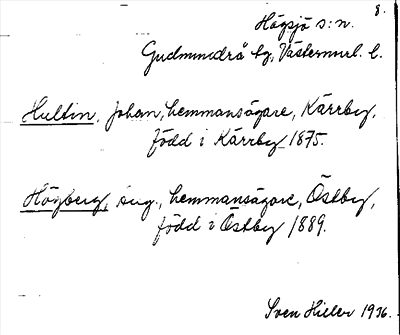 8.
Högsjö s:n.
Gudmundrå tg, Västernorrl. l.
Hultin, Johan, hemmansägare, Kärrby,
född i Kärrby 1875.
Högberg, Aug., hemmansägare, Östby,
född i Östby 1889.
Sven Hiller 1936.